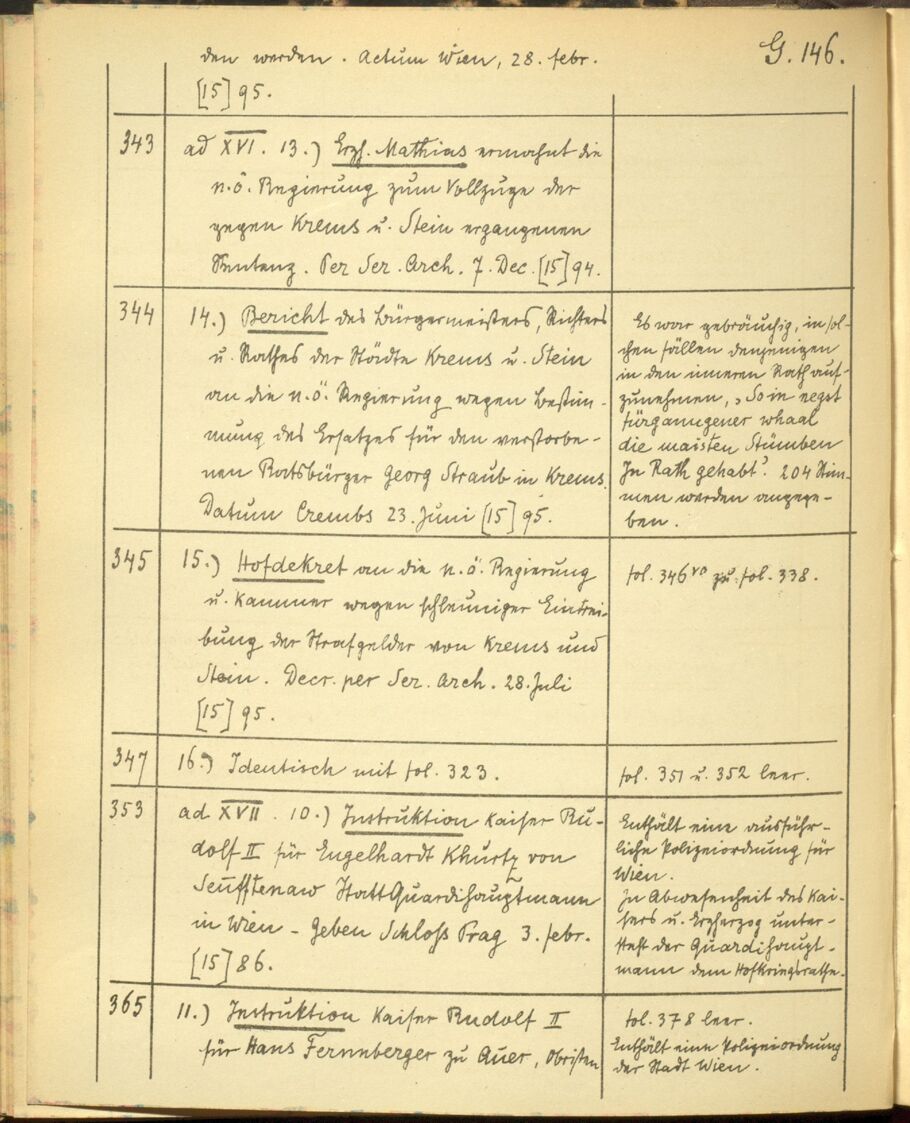 G. 146.
den werden. Actum Wien, 28. febr.
[15]95.
343
ad XVI. 13.) Erzh. Mathias ermahnt die
n.ö. Regierung zum Vollzuge der
gegen Krems u. Stein ergangenen
Sentenz. Per Ser. Arch. 7. Dec. [15]94.
344
14.) Bericht des Bürgermeisters, Richters
u. Rathes der Städte Krems u. Stein
an die n.ö. Regierung wegen Bestim-
mung des Ersatzes für den verstorbe-
nen Ratsbürger Georg Straub in Krems.
Datum Crembs 23. Juni [15]95.
Es war gebräuchig, in sol-
chen fällen denjenigen
in den inneren Rath auf-
zunehmen, „So in negst
fürganngener whaal
die maisten Stümben
In Rath gehabt". 204 Stim-
men werden angege-
ben.
345
15.) Hofdekret an die n.ö. Regierung
u. Kammer wegen schleuniger Eintrei-
bung der Strafgelder von Krems und
Stein. Decr. per Ser. Arch. 28. Juli
[15]95.
fol. 346vo zu fol. 338.
347
16.) Identisch mit fol. 323.
fol. 351 u. 352 leer.
353
ad XVII. 10.) Instruktion Kaiser Ru-
dolf II für Engelhardt Khurtz von
Seufftenaw StattQuardihauptmann
in Wien - Geben Schloß Prag 3. febr.
[15]86.
Enthält eine ausführ-
liche Polizeiordnung für
Wien.
In Abwesenheit des Kai-
sers u. Erzherzog unter-
steht der Quardihaupt-
mann dem Hofkriegsrathe.
365
11.) Instruktion Kaiser Rudolf II
für Hans Fernnberger zu Auer, Obristen
fol. 378 leer.
Enthält eine Polizeiordnung
der Stadt Wien.